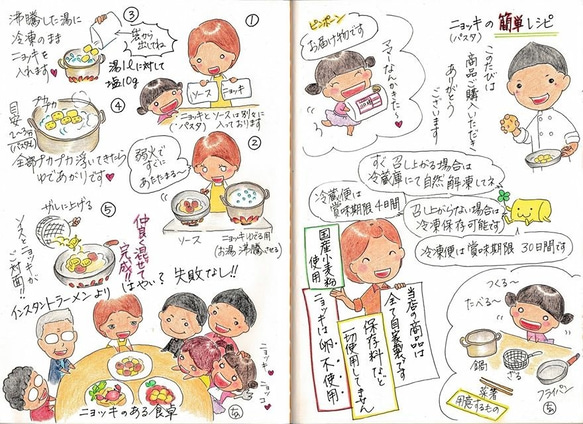 ニョッキの簡単レシピ
(パスタ)
このたびは
商品ご購入いただき
ありがとう
ございます
ピンポーン
お届け物です
ママーなんかきた〜♥
すぐ召し上がる場合は
冷蔵庫にて自然解凍してネ
召し上がらない場合は
冷凍保存可能です
冷蔵便は
賞味期限4日間
冷凍便は賞味期限30日間です
国産小麦粉
使用
当店の商品は
全て自家製です
保存料など
一切使用してません
ニョッキは卵不使用
つくる〜
たべる〜
鍋
ざる
フライパン
菜箸
用意するもの
①
ソース
ニョッキ
ニョッキとソースは別々に
(パスタ)
入っております
②
弱火で
すぐに
あたたまる〜
ソース
ニョッキゆでる用
(お湯沸騰させる)
③
沸騰した湯に
冷凍のまま
ニョッキを
入れます♥
袋から
出してね
湯1ℓに対して
塩10g
④
プカプカ
目安
2〜3分
全部プカプカ浮いてきたら
ゆであがりです♥
⑤
ザルに上げる
ソースとニョッキが
ご対面!!
仲良く混ぜて
完成!!
インスタントラーメンより
はやい?
失敗なし!!
ニョッキ
ニョッキのある食卓